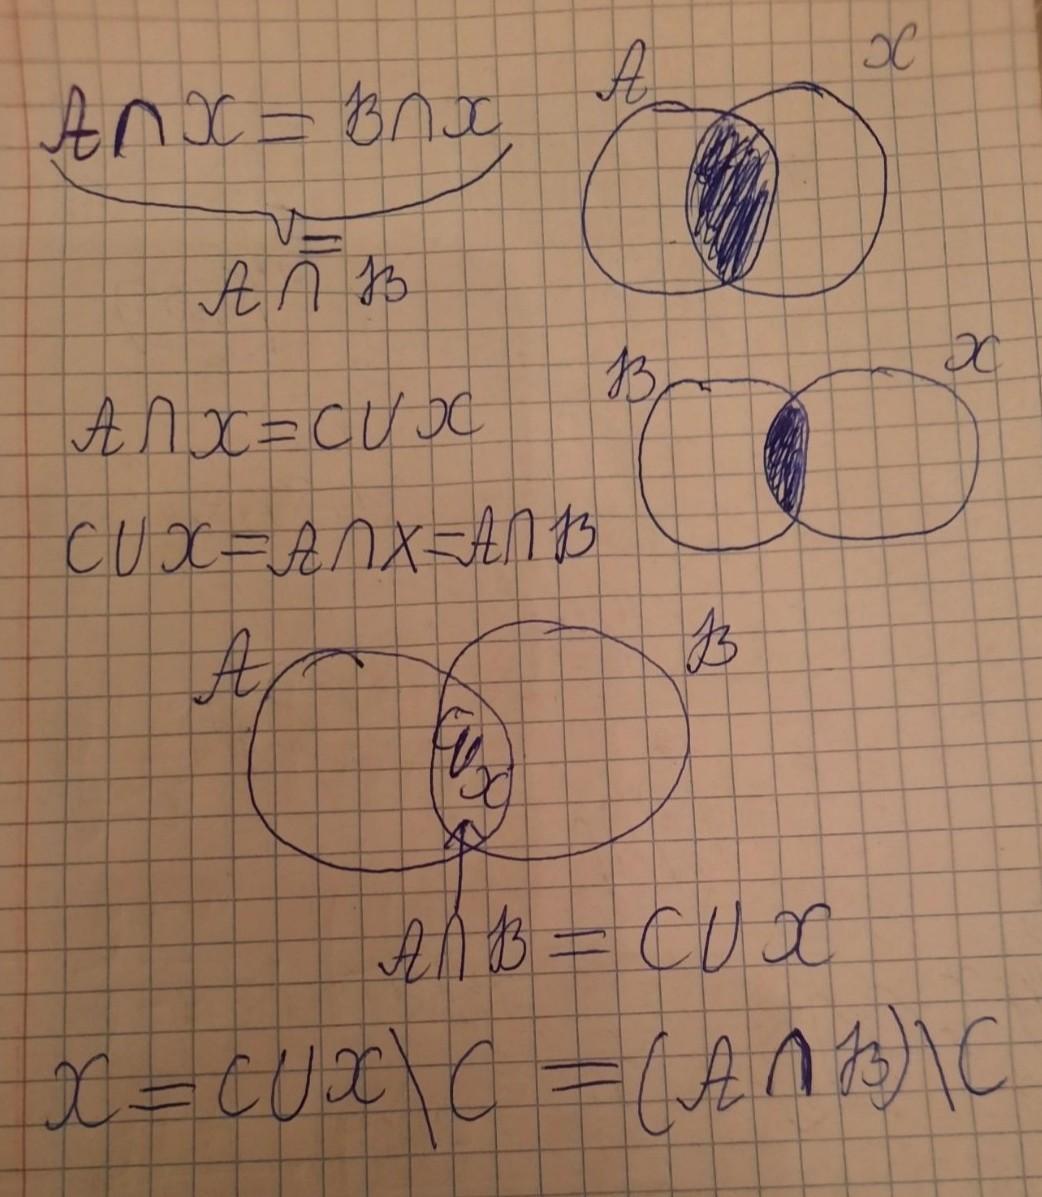 A∩X = B∩X
=
A∩B
A X
B X
A∩X=C∪X
C∪X=A∩X=A∩B
A B
C∪X
A∩B = C∪X
X = C∪X\C = (A∩B)\C